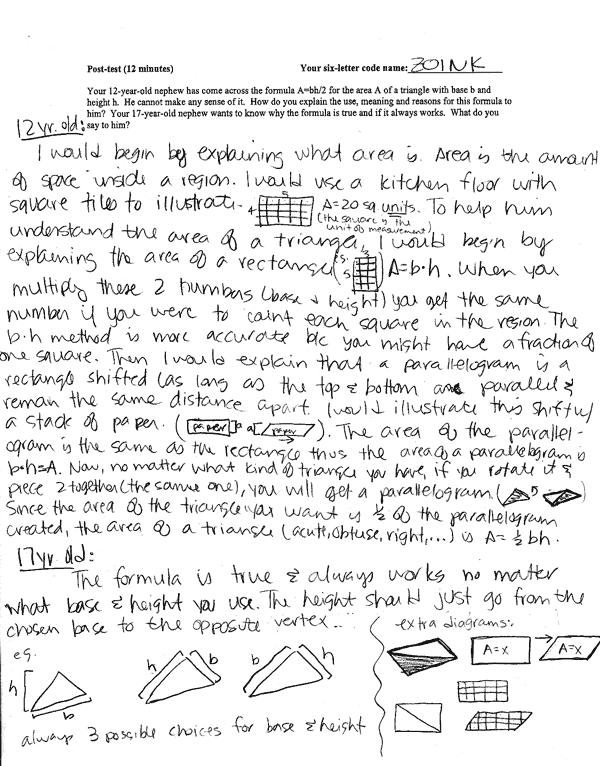 Post-test (12 minutes) Your six-letter code name: ZOINK
Your 12-year-old nephew has come across the formula A=bh/2 for the area A of a triangle with base b and
height h. He cannot make any sense of it. How do you explain the use, meaning and reasons for this formula to
him? Your 17-year-old nephew wants to know why the formula is true and if it always works. What do you
say to him?
12 yr. old:
I would begin by explaining what area is. Area is the amount
of space inside a region. I would use a kitchen floor with
square tiles to illustrate. 5 4 A=20 sq units. To help him
(the square is the
unit of measurement)
understand the area of a triangle, I would begin by
explaining the area of a rectangle (eg. 5 A=b·h. When you
multiply these 2 numbers (base & height) you get the same
number if you were to count each square in the region. The
b·h method is more accurate b/c you might have a fraction of
one square. Then I would explain that a parallelogram is a
rectangle shifted (as long as the top & bottom are parallel &
remain the same distance apart. I would illustrate this shift w/
a stack of paper. (paper paper). The area of the parallel-
ogram is the same as the rectangle thus the area of a parallelogram is
b·h=A. Now, no matter what kind of triangle you have, if you rotate it &
piece 2 together (the same one), you will get a parallelogram ( )
Since the area of the triangle you want is 1/2 of the parallelogram
created, the area of a triangle (acute, obtuse, right,...) is A=1/2 bh.
17 yr. old:
The formula is true & always works no matter
what base & height you use. The height should just go from the
chosen base to the opposite vertex...
eg.
h b
h b
b h
always 3 possible choices for base & height
extra diagrams:
A=x → A=x